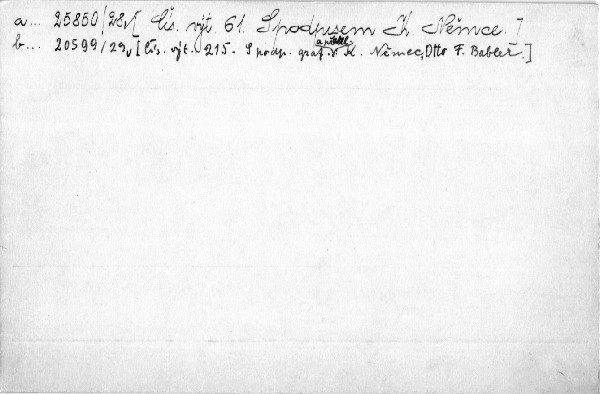 a... 25850/28, [Čís. výt. 61. S podpisem K. Němce.]
b... 20599/29, [Čís. výt. 215. S podp. graf. a překl. K. Němec, Otto F. Babler.]